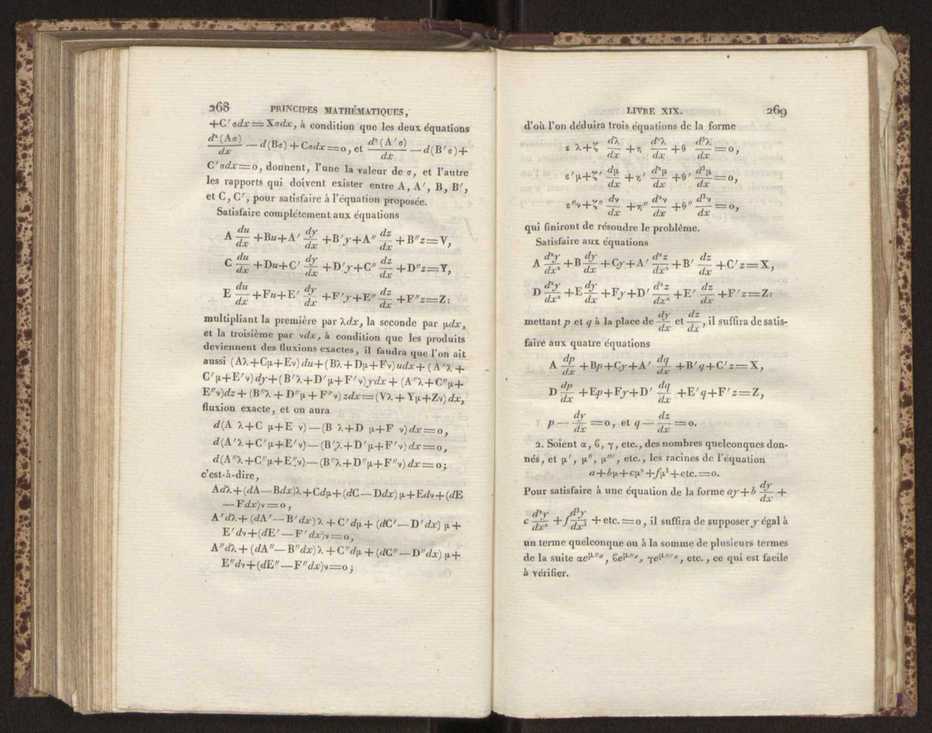 268 PRINCIPES MATHÉMATIQUES,
+C′σdx=Xσdx, à condition que les deux équations
d²(Aσ)/dx — d(Bσ)+Cσdx=0, et d²(A′σ)/dx — d(B′σ)+
C′σdx=0, donnent, l'une la valeur de σ, et l'autre
les rapports qui doivent exister entre A, A′, B, B′,
et C, C′, pour satisfaire à l'équation proposée.
Satisfaire complétement aux équations
A du/dx +Bu+A′ dy/dx +B′y+A″ dz/dx +B″z=V,
C du/dx +Du+C′ dy/dx +D′y+C″ dz/dx +D″z=Y,
E du/dx +Fu+E′ dy/dx +F′y+E″ dz/dx +F″z=Z:
multipliant la première par λdx, la seconde par μdx,
et la troisième par νdx, à condition que les produits
deviennent des fluxions exactes, il faudra que l'on ait
aussi (Aλ+Cμ+Eν)du+(Bλ+Dμ+Fν)udx+(A′λ+
C′μ+E′ν)dy+(B′λ+D′μ+F′ν)ydx+(A″λ+C″μ+
E″ν)dz+(B″λ+D″μ+F″ν)zdx=(Vλ+Yμ+Zν)dx,
fluxion exacte, et on aura
d(A λ+C μ+E ν)—(B λ+D μ+F ν)dx=0,
d(A′λ+C′μ+E′ν)—(B′λ+D′μ+F′ν)dx=0,
d(A″λ+C″μ+E″ν)—(B″λ+D″μ+F″ν)dx=0;
c'est-à-dire,
Adλ+(dA—Bdx)λ+Cdμ+(dC—Ddx)μ+Edν+(dE
—Fdx)ν=0,
A′dλ+(dA′—B′dx)λ+C′dμ+(dC′—D′dx)μ+
E′dν+(dE′—F′dx)ν=0,
A″dλ+(dA″—B″dx)λ+C″dμ+(dC″—D″dx)μ+
E″dν+(dE″—F″dx)ν=0;
LIVRE XIX. 269
d'où l'on déduira trois équations de la forme
ε λ+ζ dλ/dx +η d²λ/dx +θ d³λ/dx =0,
ε′μ+ζ′ dμ/dx +η′ d²μ/dx +θ′ d³μ/dx =0,
ε″ν+ζ″ dν/dx +η″ d²ν/dx +θ″ d³ν/dx =0,
qui finiront de résoudre le problème.
Satisfaire aux équations
A d²y/dx² +B dy/dx +Cy+A′ d²z/dx² +B′ dz/dx +C′z=X,
D d²y/dx² +E dy/dx +Fy+D′ d²z/dx² +E′ dz/dx +F′z=Z:
mettant p et q à la place de dy/dx et dz/dx, il suffira de satis-
faire aux quatre équations
A dp/dx +Bp+Cy+A′ dq/dx +B′q+C′z=X,
D dp/dx +Ep+Fy+D′ dq/dx +E′q+F′z=Z,
p — dy/dx =0, et q — dz/dx =0.
2. Soient α, ϐ, γ, etc., des nombres quelconques don-
nés, et μ′, μ″, μ‴, etc., les racines de l'équation
a+bμ+cμ²+fμ³+etc.=0.
Pour satisfaire à une équation de la forme ay+b dy/dx +
c d²y/dx² +f d³y/dx³ +etc.=0, il suffira de supposer y égal à
un terme quelconque ou à la somme de plusieurs termes
de la suite αe^μ′x, ϐe^μ″x, γe^μ‴x, etc., ce qui est facile
à vérifier.